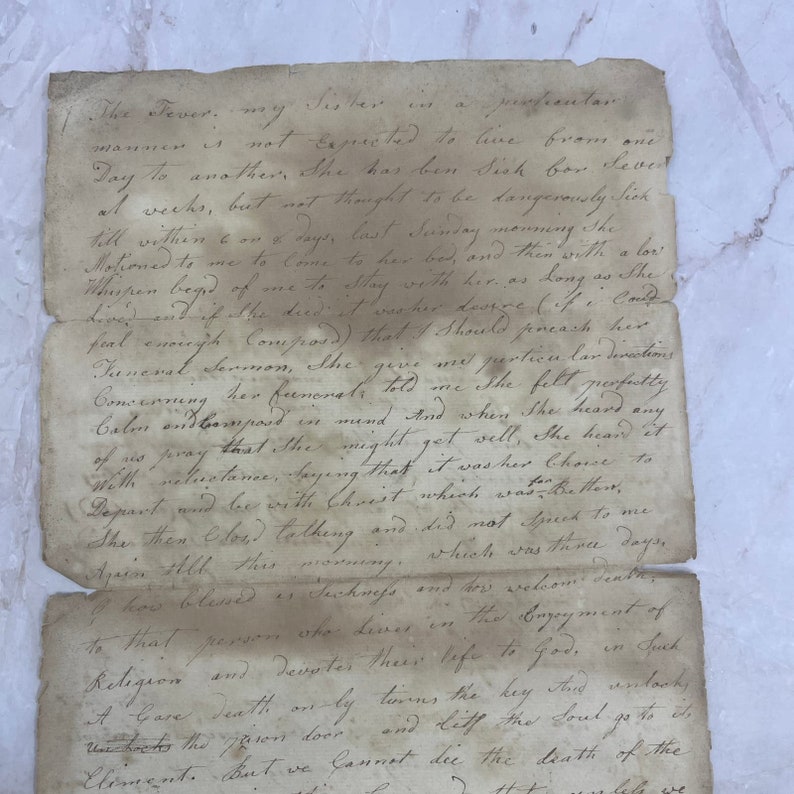 The Fever. my Sister in a perticular
manner is not Expected to live from one
Day to another, She has ben Sick for Sever
al weeks, but not thought to be dangerously Sick
till within 6 or 8 days, last Sunday morning She
Motioned to me to Come to her bed, and then with a low
Whisper beg,d of me to Stay with her as Long as She
Live,d and if She died it was her desire (if i Could
feal enough Compos,d) that I Should preach her
Funeral Sermon, She give me perticular directions
Concerning her funeral; told me She felt perfectly
Calm and Composd in mind And when She heard any
of us pray that She might get well, She heard it
With reluctance, Saying that it was her Choice to
Depart and be with Christ which was far Better,
She then Clos,d talking and did not Speek to me
Again till this morning, which was three days,
O how blessed is Sickness and how welcom death,
to that person who Lives in the Enjoyment of
Religion and devotes their life to God, in Such
A Case death on-ly turns the key And unlocks
un-locks the prison door and lets the Soul go to its
Eliment. But we Cannot die the death of the
that we